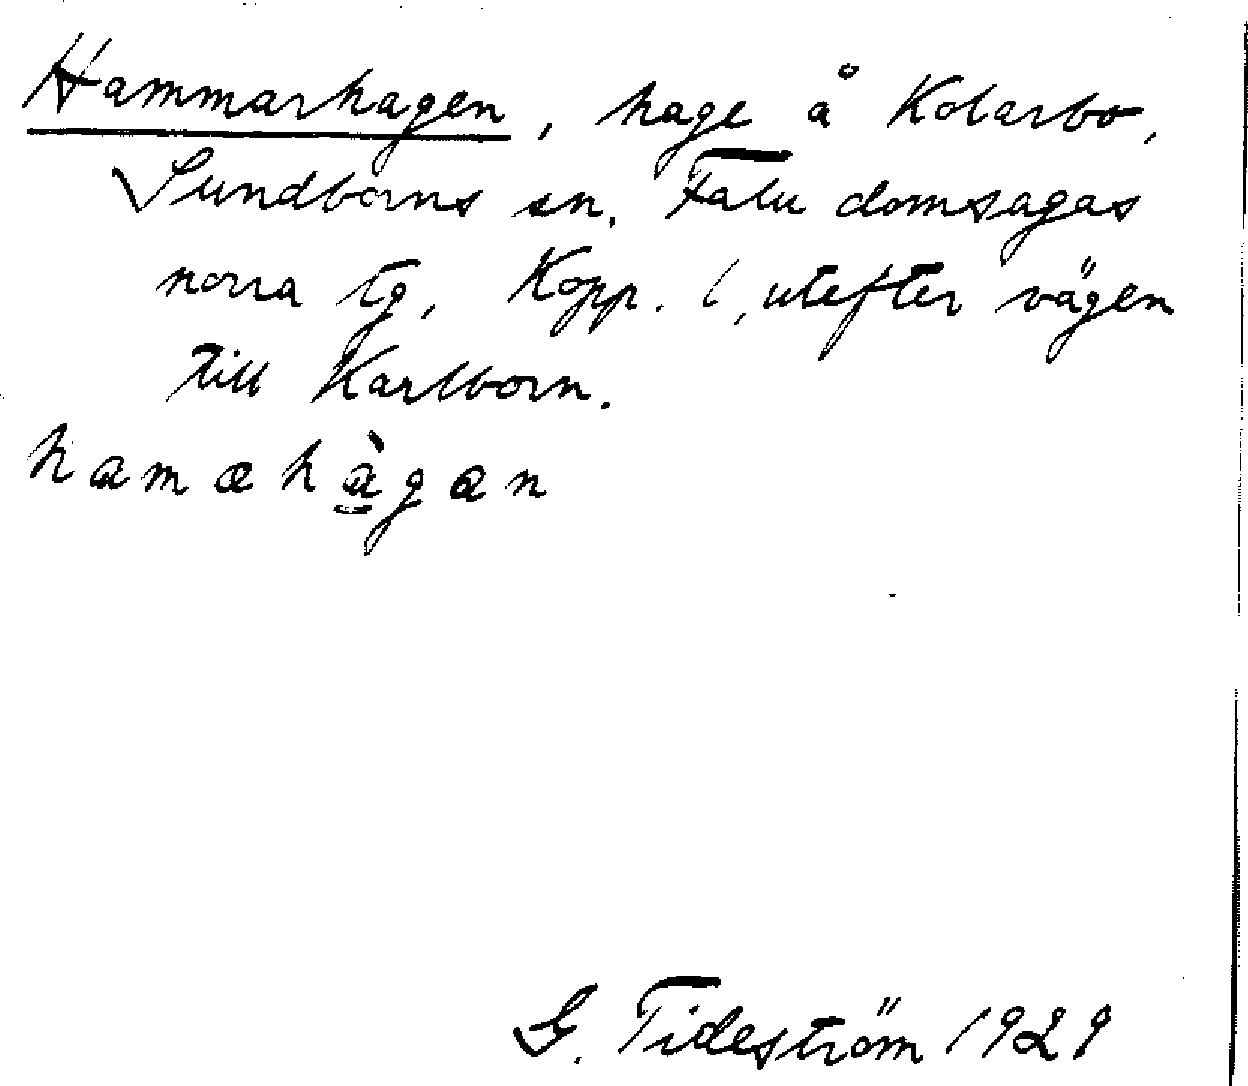 Hammarhagen, hage å Kolarbo,
Sundborns sn, Falu domsagas
norra tg, Kopp. l, utefter vägen
till Karlborn.
hamæhàgan
G. Tideström 1929